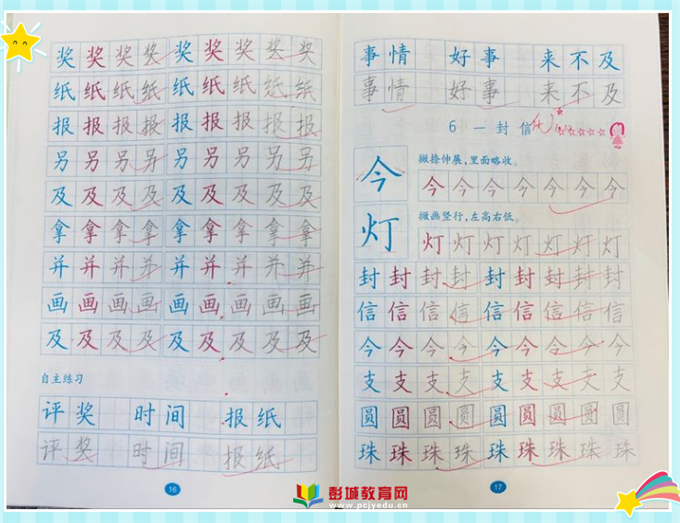 奖奖奖奖奖奖奖奖奖
纸纸纸纸纸纸纸纸纸
报报报报报报报报报
另另另另另另另另另
及及及及及及及及及
拿拿拿拿拿拿拿拿拿
并并并并并并并并并
画画画画画画画画画
及及及及及及及及及
自主练习
评奖 时间 报纸
评奖 时间 报纸
16
事情 好事 来不及
事情 好事 来不及
6 一封信
今
撇捺伸展，里面略收。
今今今今今今今
灯
撇画竖行，左高右低。
灯灯灯灯灯灯灯
封封封封封封封封封
信信信信信信信信信
今今今今今今今今今
支支支支支支支支支
圆圆圆圆圆圆圆圆圆
珠珠珠珠珠珠珠珠珠
17
彭城教育网
www.pcjyedu.cn